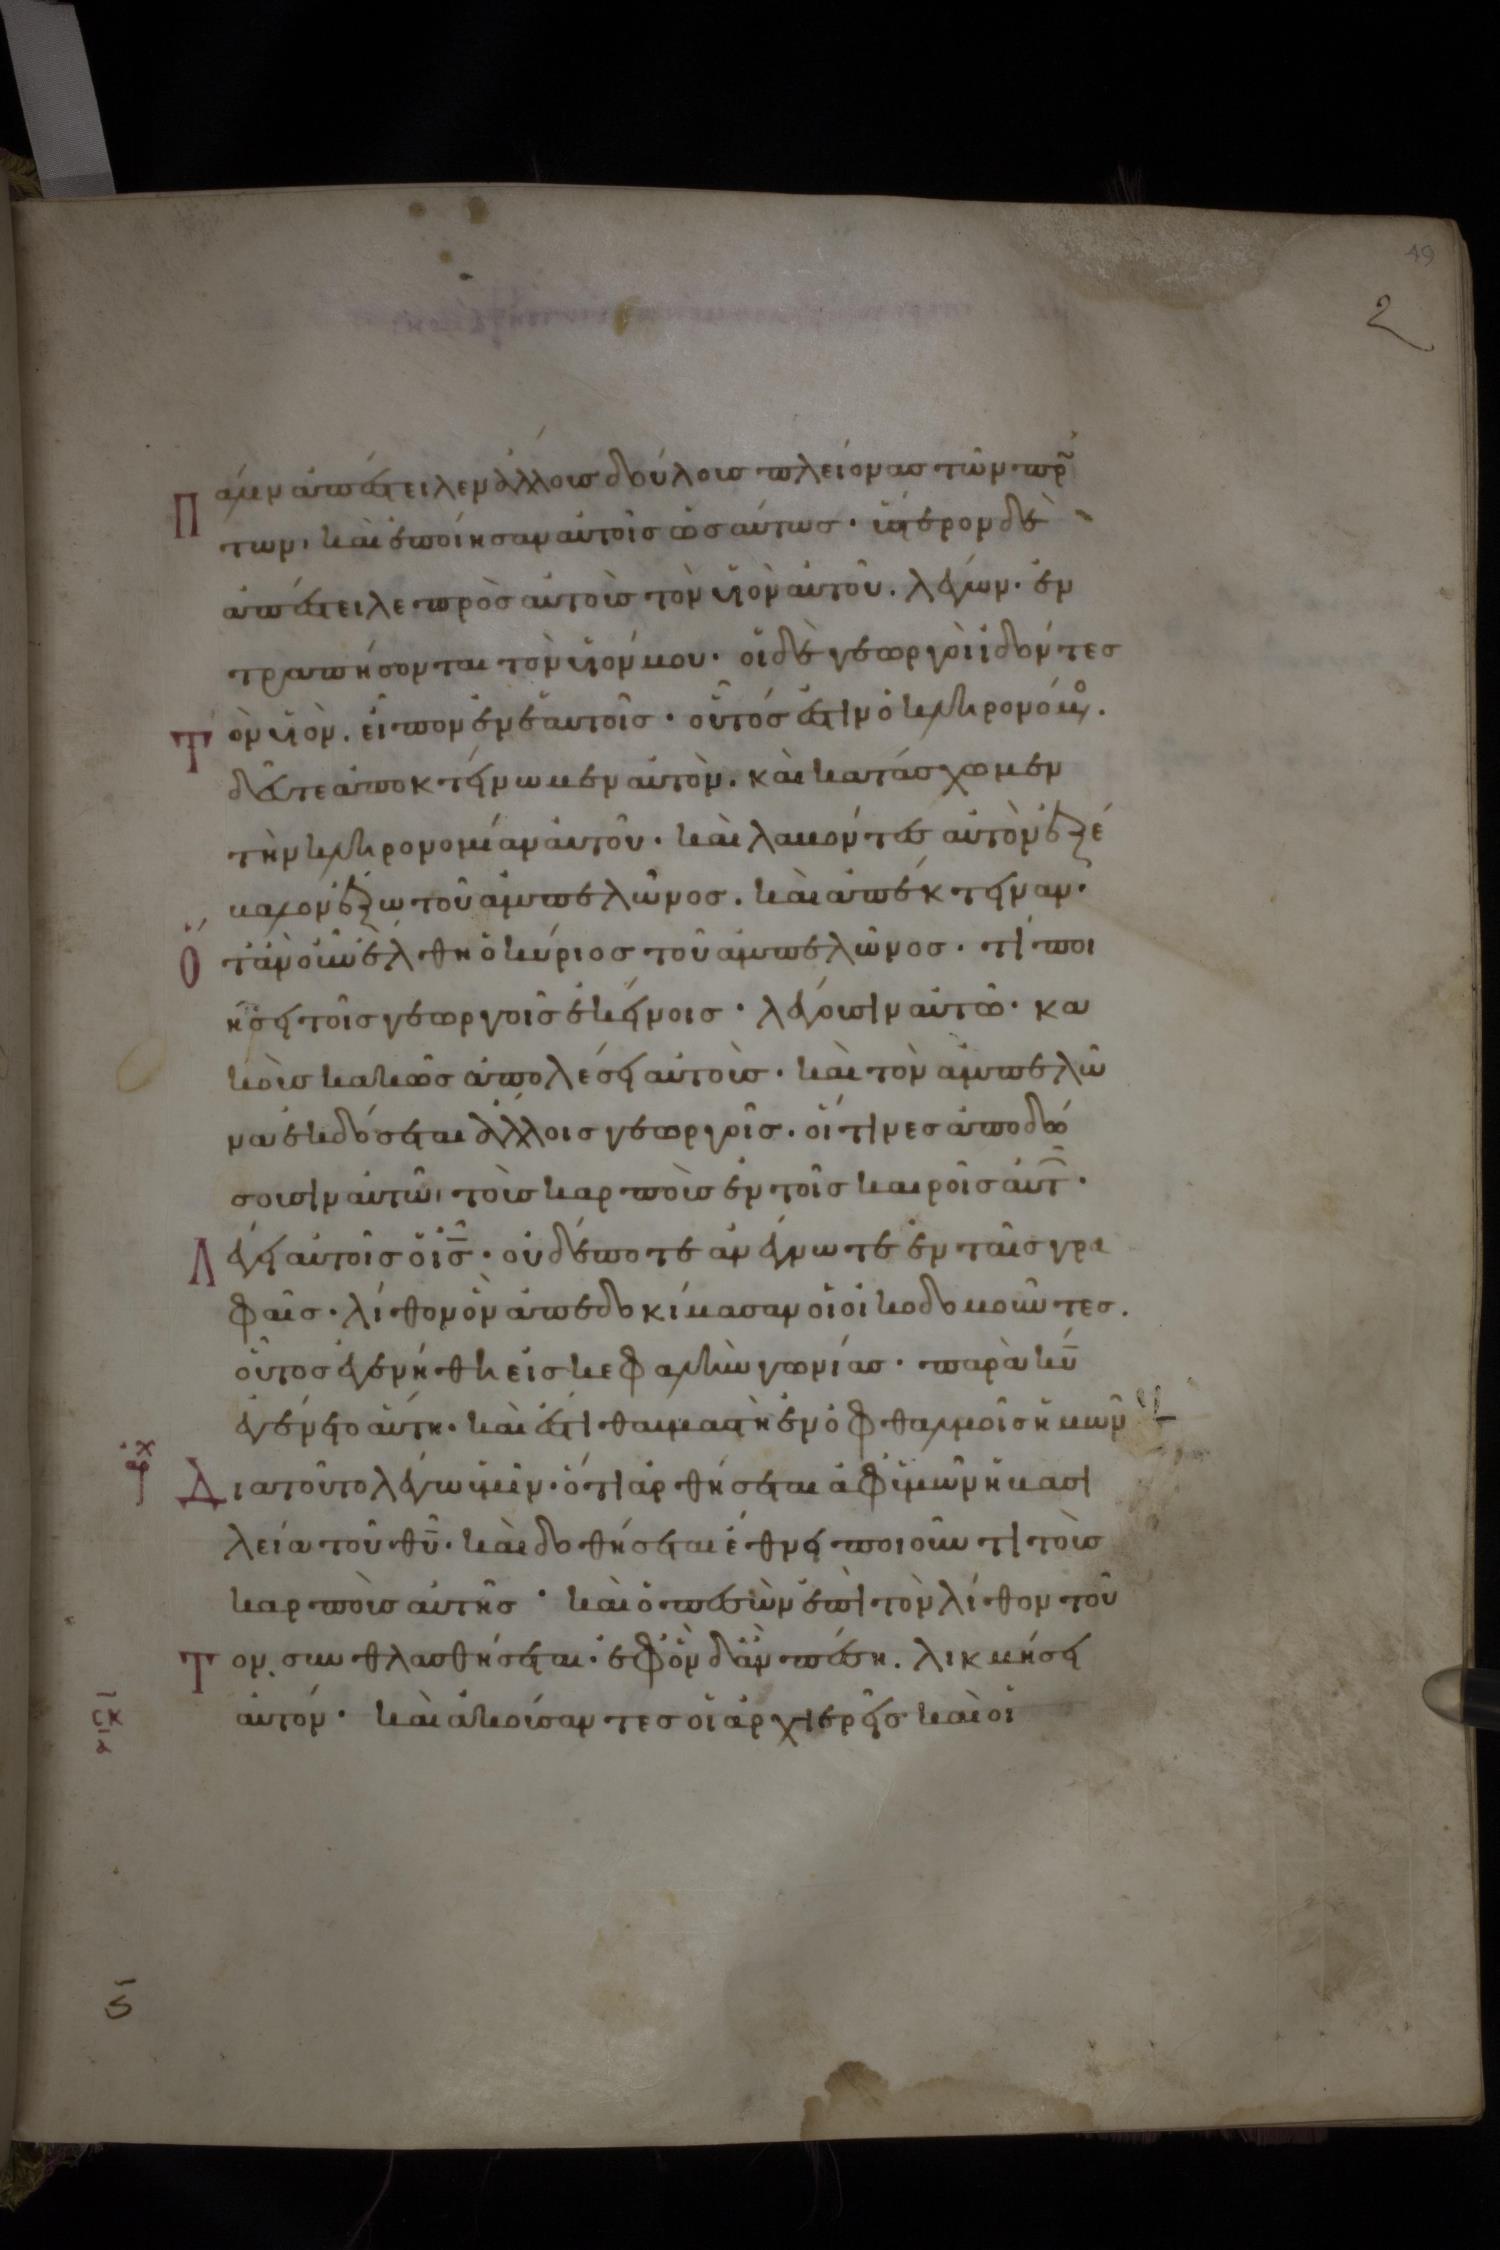 49
2
Πάλιν ἀπέστειλεν ἄλλους δούλους πλείονας τῶν πρώ
των, καὶ ἐποίησαν αὐτοῖς ὡσαύτως· ὕστερον δὲ
ἀπέστειλε πρὸς αὐτοὺς τὸν υἱὸν αὐτοῦ. λέγων· ἐν
τραπήσονται τὸν υἱόν μου· οἱ δὲ γεωργοὶ ἰδόντες
Τὸν υἱὸν. εἶπον ἐν ἑαυτοῖς· οὗτός ἐστιν ὁ κληρονόμο.
δεῦτε ἀποκτείνωμεν αὐτὸν. καὶ κατάσχωμεν
τὴν κληρονομίαν αὐτοῦ· καὶ λαβόντες αὐτὸν ἐξέ
βαλον ἔξω τοῦ ἀμπελῶνος. καὶ ἀπέκτειναν·
Ὅταν οὖν ἔλθη ὁ κύριος τοῦ ἀμπελῶνος. τί ποι
ήσει τοῖς γεωργοῖς ἐκείνοις· λέγουσιν αὐτῶ· κα
κοὺς κακῶς ἀπολέσει αὐτοὺς· καὶ τὸν ἀμπελῶ
να ἐκδόσεται ἄλλοις γεωργοῖς. οἵτινες ἀποδώ
σουσιν αὐτῶ, τοὺς καρποὺς ἐν τοῖς καιροῖς αὐτ̑·
Λέγει αὐτοῖς ὁ ις̅· οὐδέποτε ἀνέγνωτε ἐν ταῖς γρα
φαῖς· λίθον ὃν ἀπεδοκίμασαν οἱ οἰκοδομοῦντες.
οὗτος ἐγενήθη εἰς κεφαλὴν γωνίας· παρὰ κυ̅
ἐγένετο αὕτη. καὶ ἔστι θαυμαστὴ ἐν ὀφθαλμοῖς ἡμῶν
ἀρχ Διατοῦτο λέγω ὑμῖν· ὅτι ἀρθήσεται ἀφ' ὑμῶν ἡ βασι
λεία τοῦ θυ̅· καὶ δοθήσεται ἔθνει ποιοῦντι τοὺς
καρποὺς αὐτῆς· καὶ ὁ πεσὼν ἐπὶ τὸν λίθον τοῦ
Τον. συνθλασθήσεται· ἐφ' ὃν δ' ἂν πέση. λικμήσει
αὐτόν· καὶ ἀκούσαντες οἱ ἀρχιερεῖς καὶ οἱ